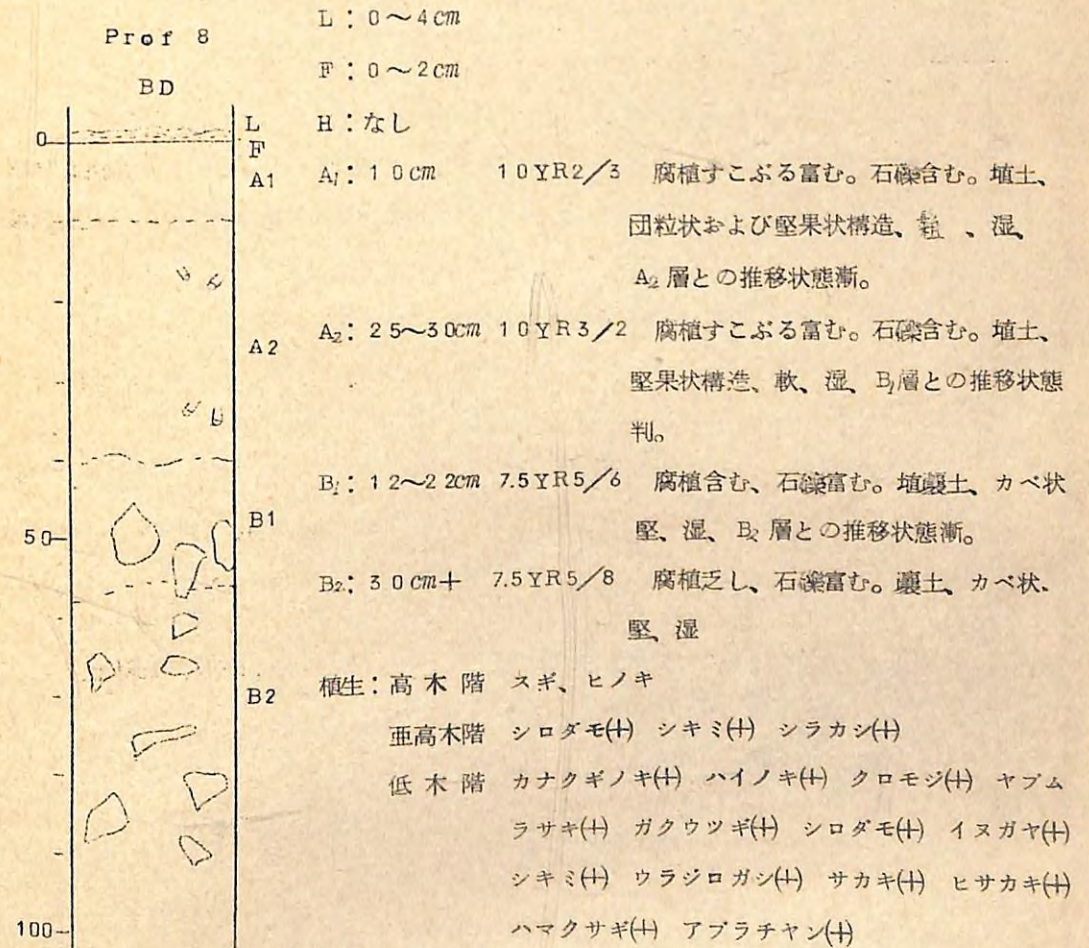 Prof 8
BD
0
50
100
L
F
A1
A2
B1
B2
L：0～4cm
F：0～2cm
H：なし
A1：10cm 10YR2/3 腐植すこぶる富む。石礫含む。埴土、
団粒状および堅果状構造、粗、湿、
A2層との推移状態漸。
A2：25～30cm 10YR3/2 腐植すこぶる富む。石礫含む。埴土、
堅果状構造、軟、湿、B1層との推移状態
判。
B1：12～22cm 7.5YR5/6 腐植含む、石礫富む。埴壌土、カベ状
堅、湿、B2層との推移状態漸。
B2：30cm＋ 7.5YR5/8 腐植乏し、石礫富む。壌土、カベ状.
堅、湿
植生：高木階 スギ、ヒノキ
亜高木階 シロダモ(+) シキミ(+) シラカシ(+)
低木階 カナクギノキ(+) ハイノキ(+) クロモジ(+) ヤブム
ラサキ(+) ガクウツギ(+) シロダモ(+) イヌガヤ(+)
シキミ(+) ウラジロガシ(+) サカキ(+) ヒサカキ(+)
ハマクサギ(+) アブラチヤン(+)